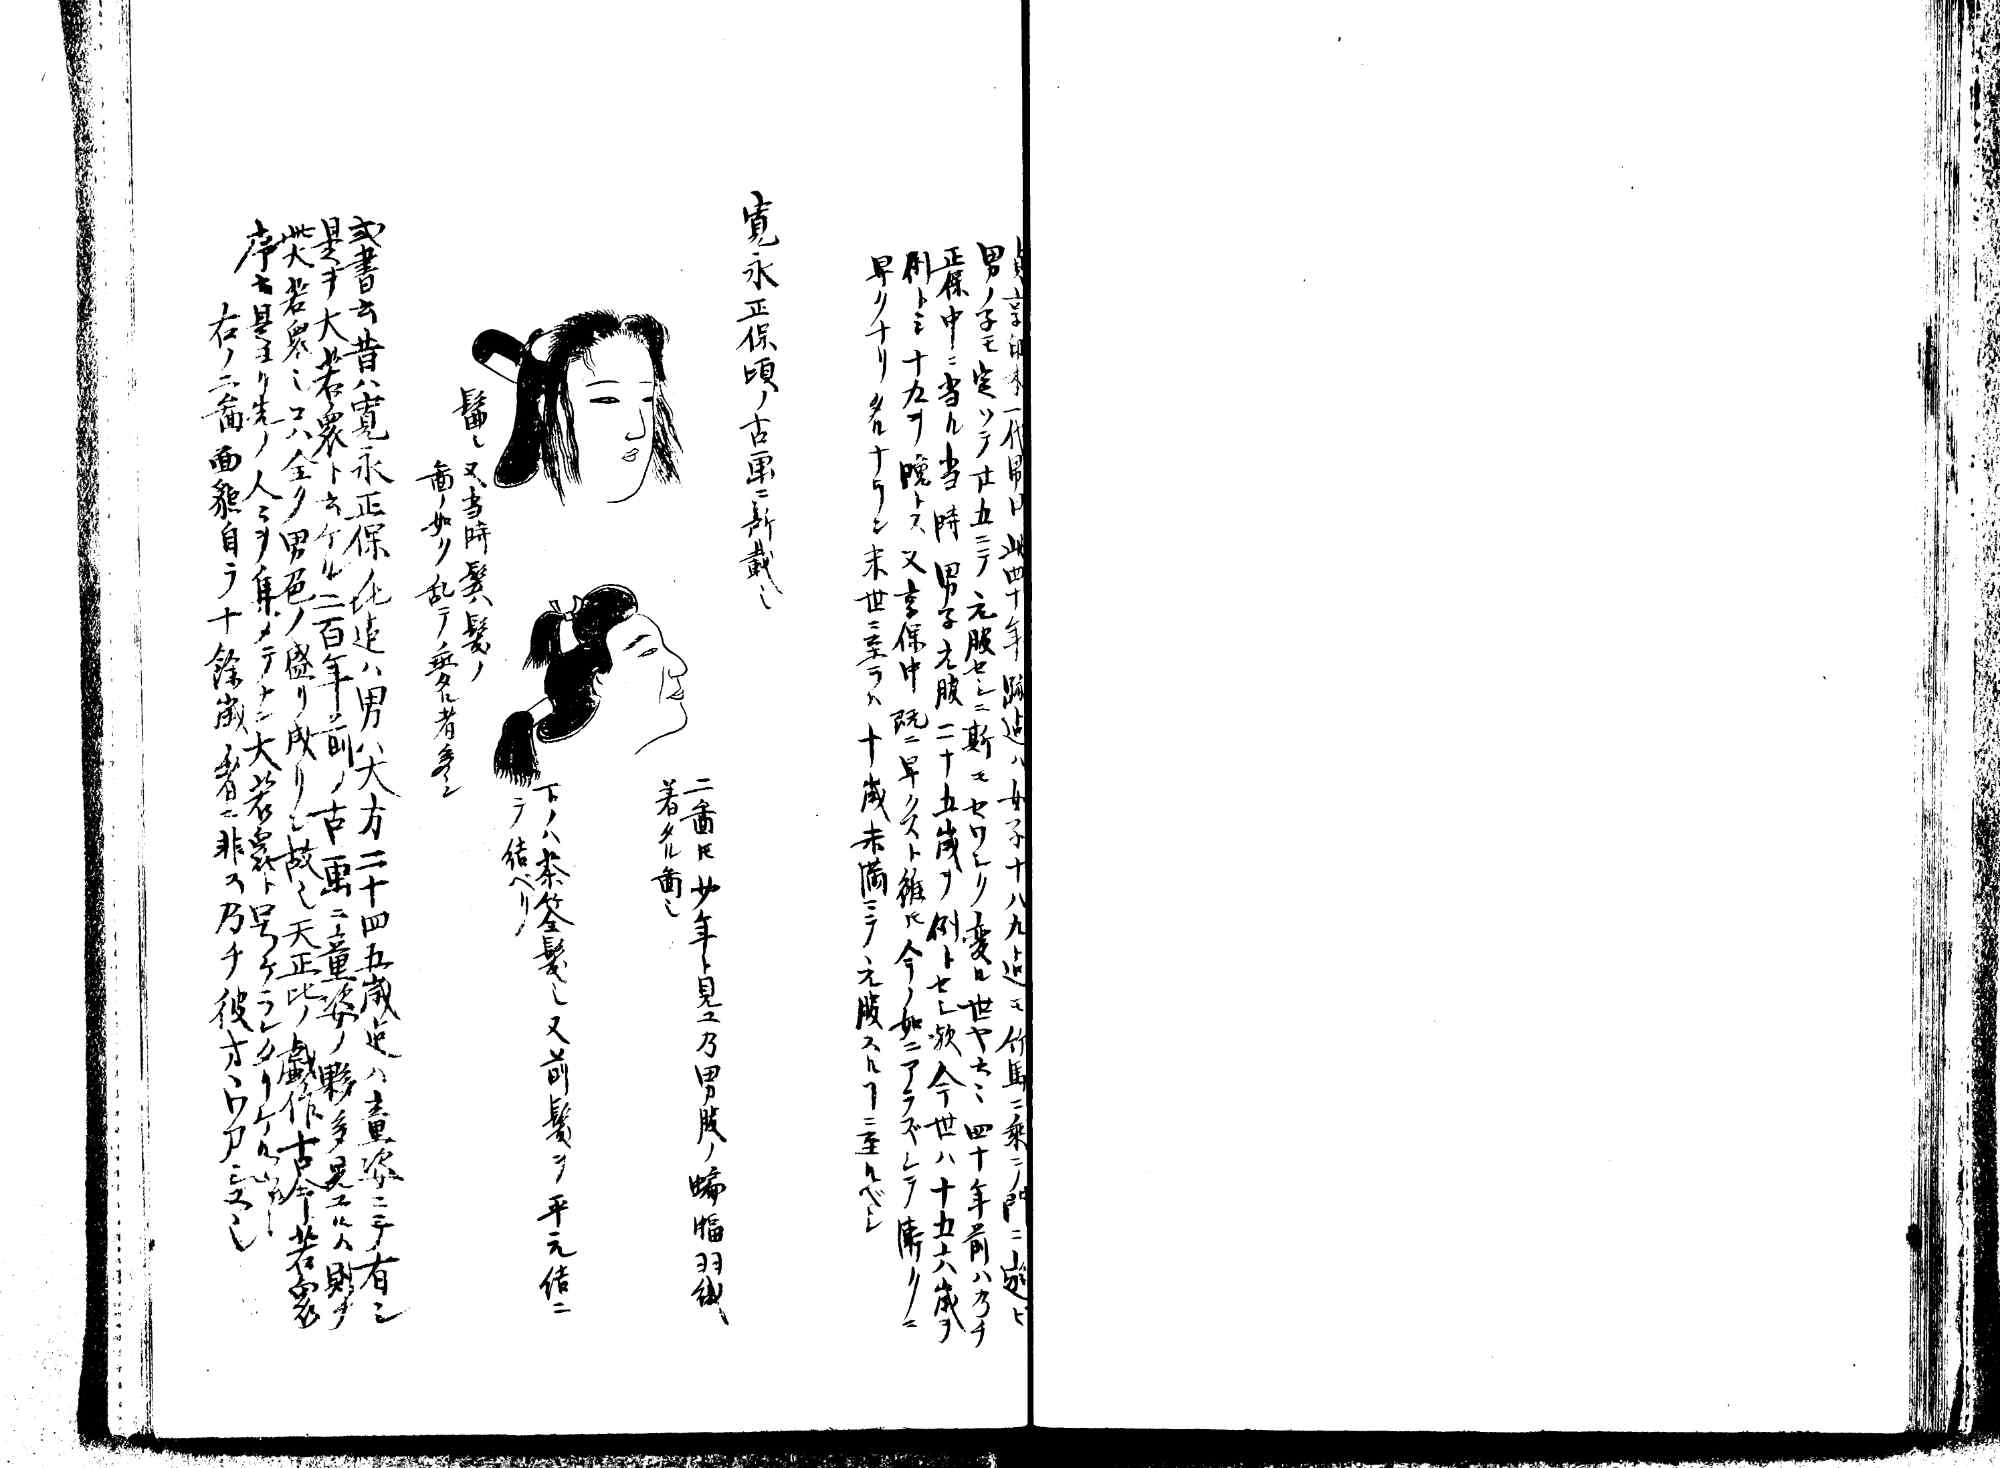 貞享印本一代男曰此四十年跡迄ハ女子十八九迄モ竹馬ニ乗テ門ニ遊ビ
男ノ子モ定ツテ廿五ニテ元服セシニ斯モセワシク変ル世ヤト云々四十年前ハ乃チ
正保中ニ当ル当時男子元服二十五歳ヲ例トセシ歟今世ハ十五六歳ヲ
例トシ十九ヲ晩トス又享保中既ニ早クスト雖ドモ今ノ如ニアラズシテ漸クニ
早クナリタルナラン末世ニ至ラハ十歳未満ニテ元服スルコトニ至ルベシ
寛永正保頃ノ古画ニ所載也
二図トモ少年ト見ユ乃男服ノ蝙蝠羽織
着タル図也
下ノハ茶筌髪也又前髪ヲ平元結ニ
テ結ヘリ
髷也又当時鬢髪ノ
図ノ如ク乱テ垂タル者多シ
或書云昔ハ寛永正保ノ比迄ハ男ハ大方二十四五歳迄ハ童姿ニテ有シ
是ヲ大若衆ト云ケル二百年前ノ古画ニ童姿ノ夥多見エルハ則チ
此大若衆也コハ全ク男色ノ盛リ成リシ故也天正比ノ戯作古今若衆
序云是ヨリ先ノ人々ヲ集メテナン大若衆ト号ケラレタリケル
右ノ二図面貌自ラ十餘歳ノ者ニ非ス乃チ彼大ワカシユ也